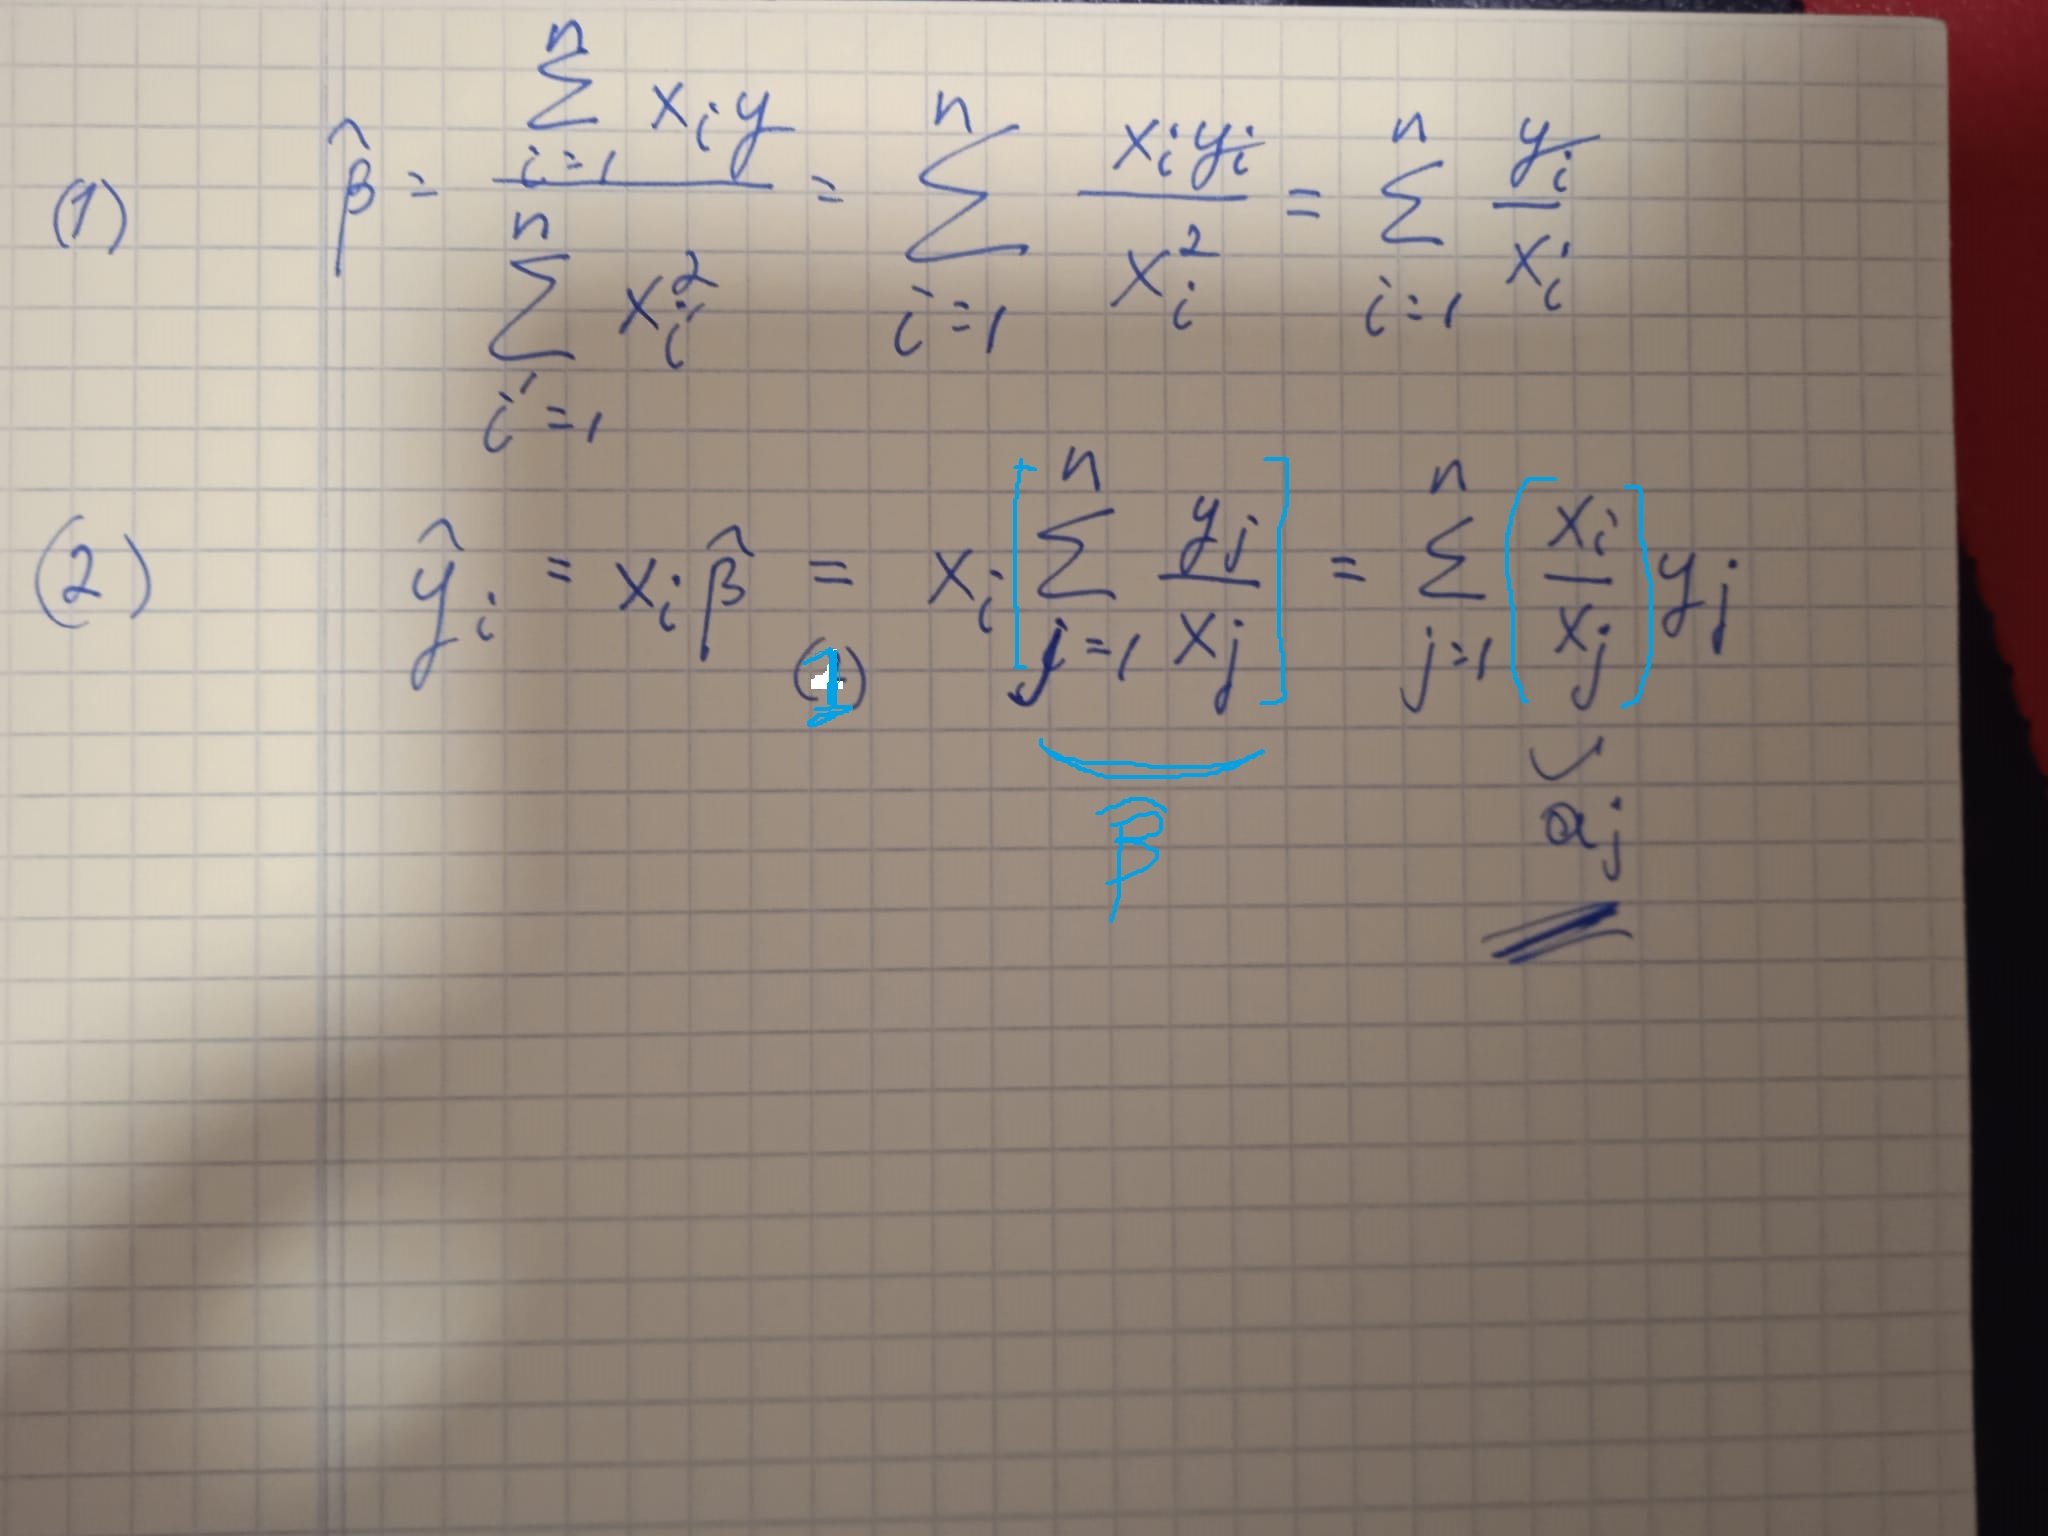 (1) β̂ = (∑_{i=1}^{n} x_i y) / (∑_{i'=1}^{n} x_{i'}^2) = ∑_{i=1}^{n} (x_i y_i) / (x_i^2) = ∑_{i=1}^{n} y_i / x_i
(2) ŷ_i = x_i β̂ =_{(1)} x_i [∑_{j=1}^{n} y_j / x_j] = ∑_{j=1}^{n} (x_i / x_j) y_j
β̂ a_j